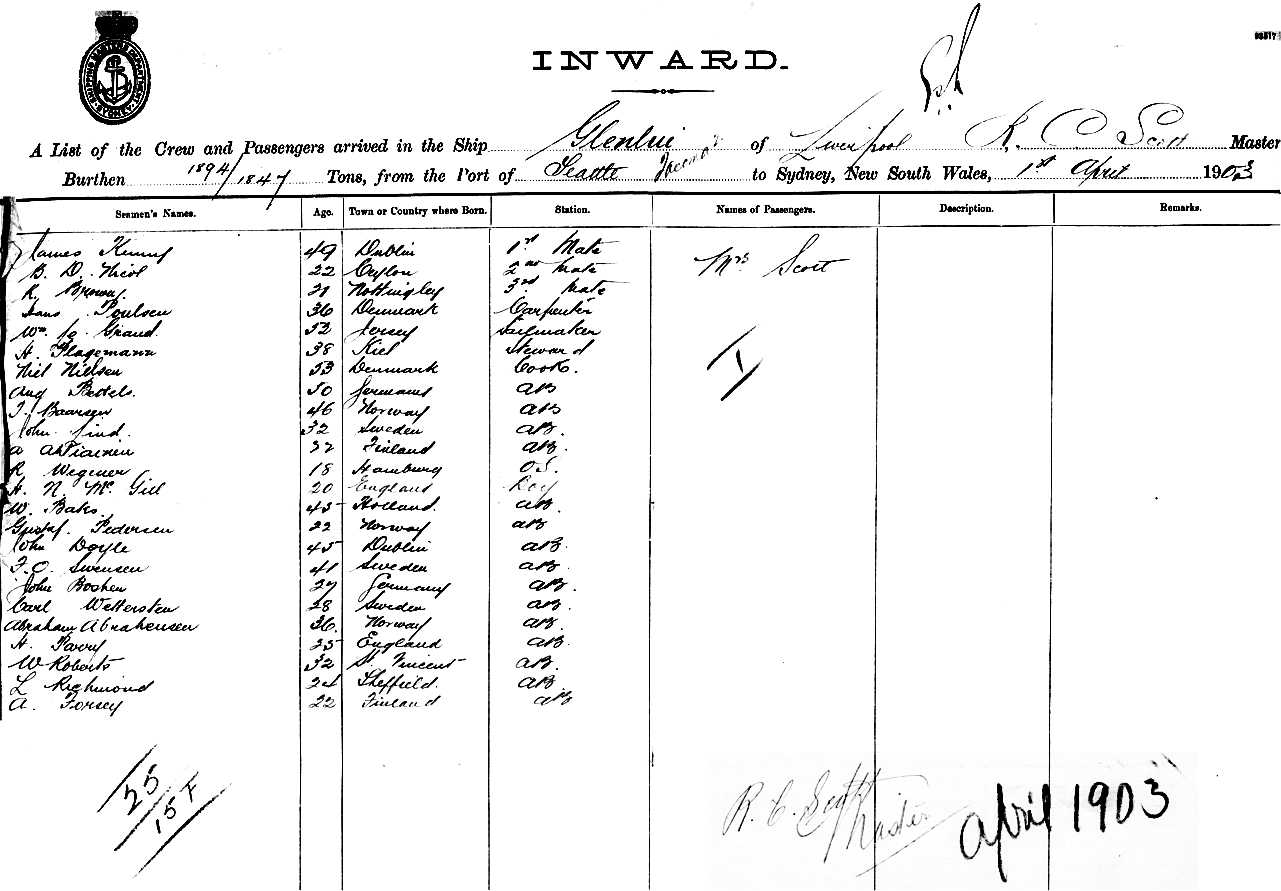 SHIPPING MASTERS DEPARTMENT SYDNEY
INWARD.
A List of the Crew and Passengers arrived in the Ship Glenlui of Liverpool R. C Scott Master
Burthen 1894/1847 Tons, from the Port of Seattle Tacoma to Sydney, New South Wales, 1st April 1903
Seamen's Names. Age. Town or Country where Born. Station. Names of Passengers. Description. Remarks.
James 49 Dublin 1st Mate
B. D. Nicol 22 Ceylon 2nd Mate Mrs Scott
R. Brown 21 Nottingley 3rd Mate
Hans Poulsen 36 Denmark Carpenter
Wm Le Grand 52 Jersey Sailmaker
H. Plagemann 38 Kiel Steward
Niel Nielsen 53 Denmark Cook.
Aug 50 Germany AB
T. Baarsen 46 Norway AB
John Lind. 32 Sweden AB.
A 32 Finland AB.
R Wegener 18 Hamburg O.S.
H. N. Mc Gill 20 England Boy
W. Baks 45 Holland. AB.
Gustaf. Pedersen 22 Norway AB
John Doyle 45 Dublin AB.
F. O. Swensen 41 Sweden AB.
John Boshen 27 Germany AB.
Carl Wettersten 28 Sweden AB.
Abraham Abrahensen 36. Norway AB.
H. Parry 25 England AB.
W Roberts 32 St. Vincent AB.
L Richmond 24 Sheffield. AB
A. Forsey 22 Finland AB
1
25
15 F
R. C. Scott
Master
April 1903